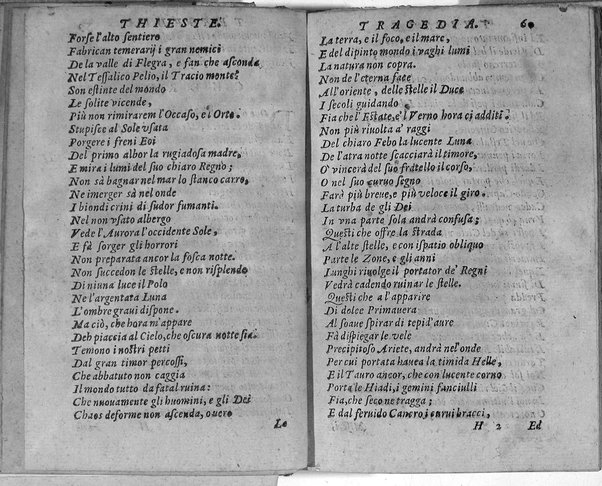 THIESTE.
Forse l'alto sentiero
Fabrican temerarij i gran nemici
De la valle di Flegra, e fan che ascenda
Nel Tessalico Pelio, il Tracio monte?
Son estinte del mondo
Le solite vicende,
Più non rimirerem l'Occaso, e l'Orto.
Stupisce al Sole vsata
Porgere i freni Eoi
Del primo albor la rugiadosa madre,
E mira i lumi del suo chiaro Regno;
Non sà bagnar nel mar lo stanco carro,
Ne imerger sà nel onde
I biondi crini di sudor fumanti.
Nel non vsato albergo
Vede l'Aurora l'occidente Sole,
E fà sorger gli horrori
Non preparata ancor la fosca notte.
Non succedon le stelle, e non risplende
Di niuna luce il Polo
Ne l'argentata Luna
L'ombre graui dispone.
Ma ciò, che hora m'appare
Deh piaccia al Cielo, che oscura notte sia.
Temono i nostri petti
Dal gran timor percossi,
Che abbatuto non caggia
Il mondo tutto da fatal ruina:
Che nuouamente gli huomini, e gli Dei
Chaos deforme non ascenda, ouero
Le
TRAGEDIA. 60
La terra, e il foco, e il mare,
E del dipinto mondo i vaghi lumi
La natura non copra.
Non de l'eterna face
All'oriente, delle stelle il Duce
I secoli guidando
Fia che l'Estate, e'l Verno hora ci additi.
Non più riuolta a' raggi
Del chiaro Febo la lucente Luna
De l'atra notte scacciarà il timore,
O' vincerà del suo fratello il corso,
O nel suo curuo segno
Farà più breue, e più veloce il giro.
La turba de gli Dei
In vna parte sola andrà confusa;
Questi che offre la strada
A l'alte stelle, e con ispatio obliquo
Parte le Zone, e gli anni
Lunghi riuolge il portator de' Regni
Vedrà cadendo ruinar le stelle.
Questi che a l'apparire
Di dolce Primauera
Al soaue spirar di tepid'aure
Fà dispiegar le vele
Precipitoso Ariete, andrà nel'onde
Per cui portata hauea la timida Helle,
E il Tauro ancor, che con lucente corno
Porta le Hiadi, i gemini fanciulli
Fia, che seco ne tragga;
E dal feruido Cancro, i curui bracci,
H 2 Ed